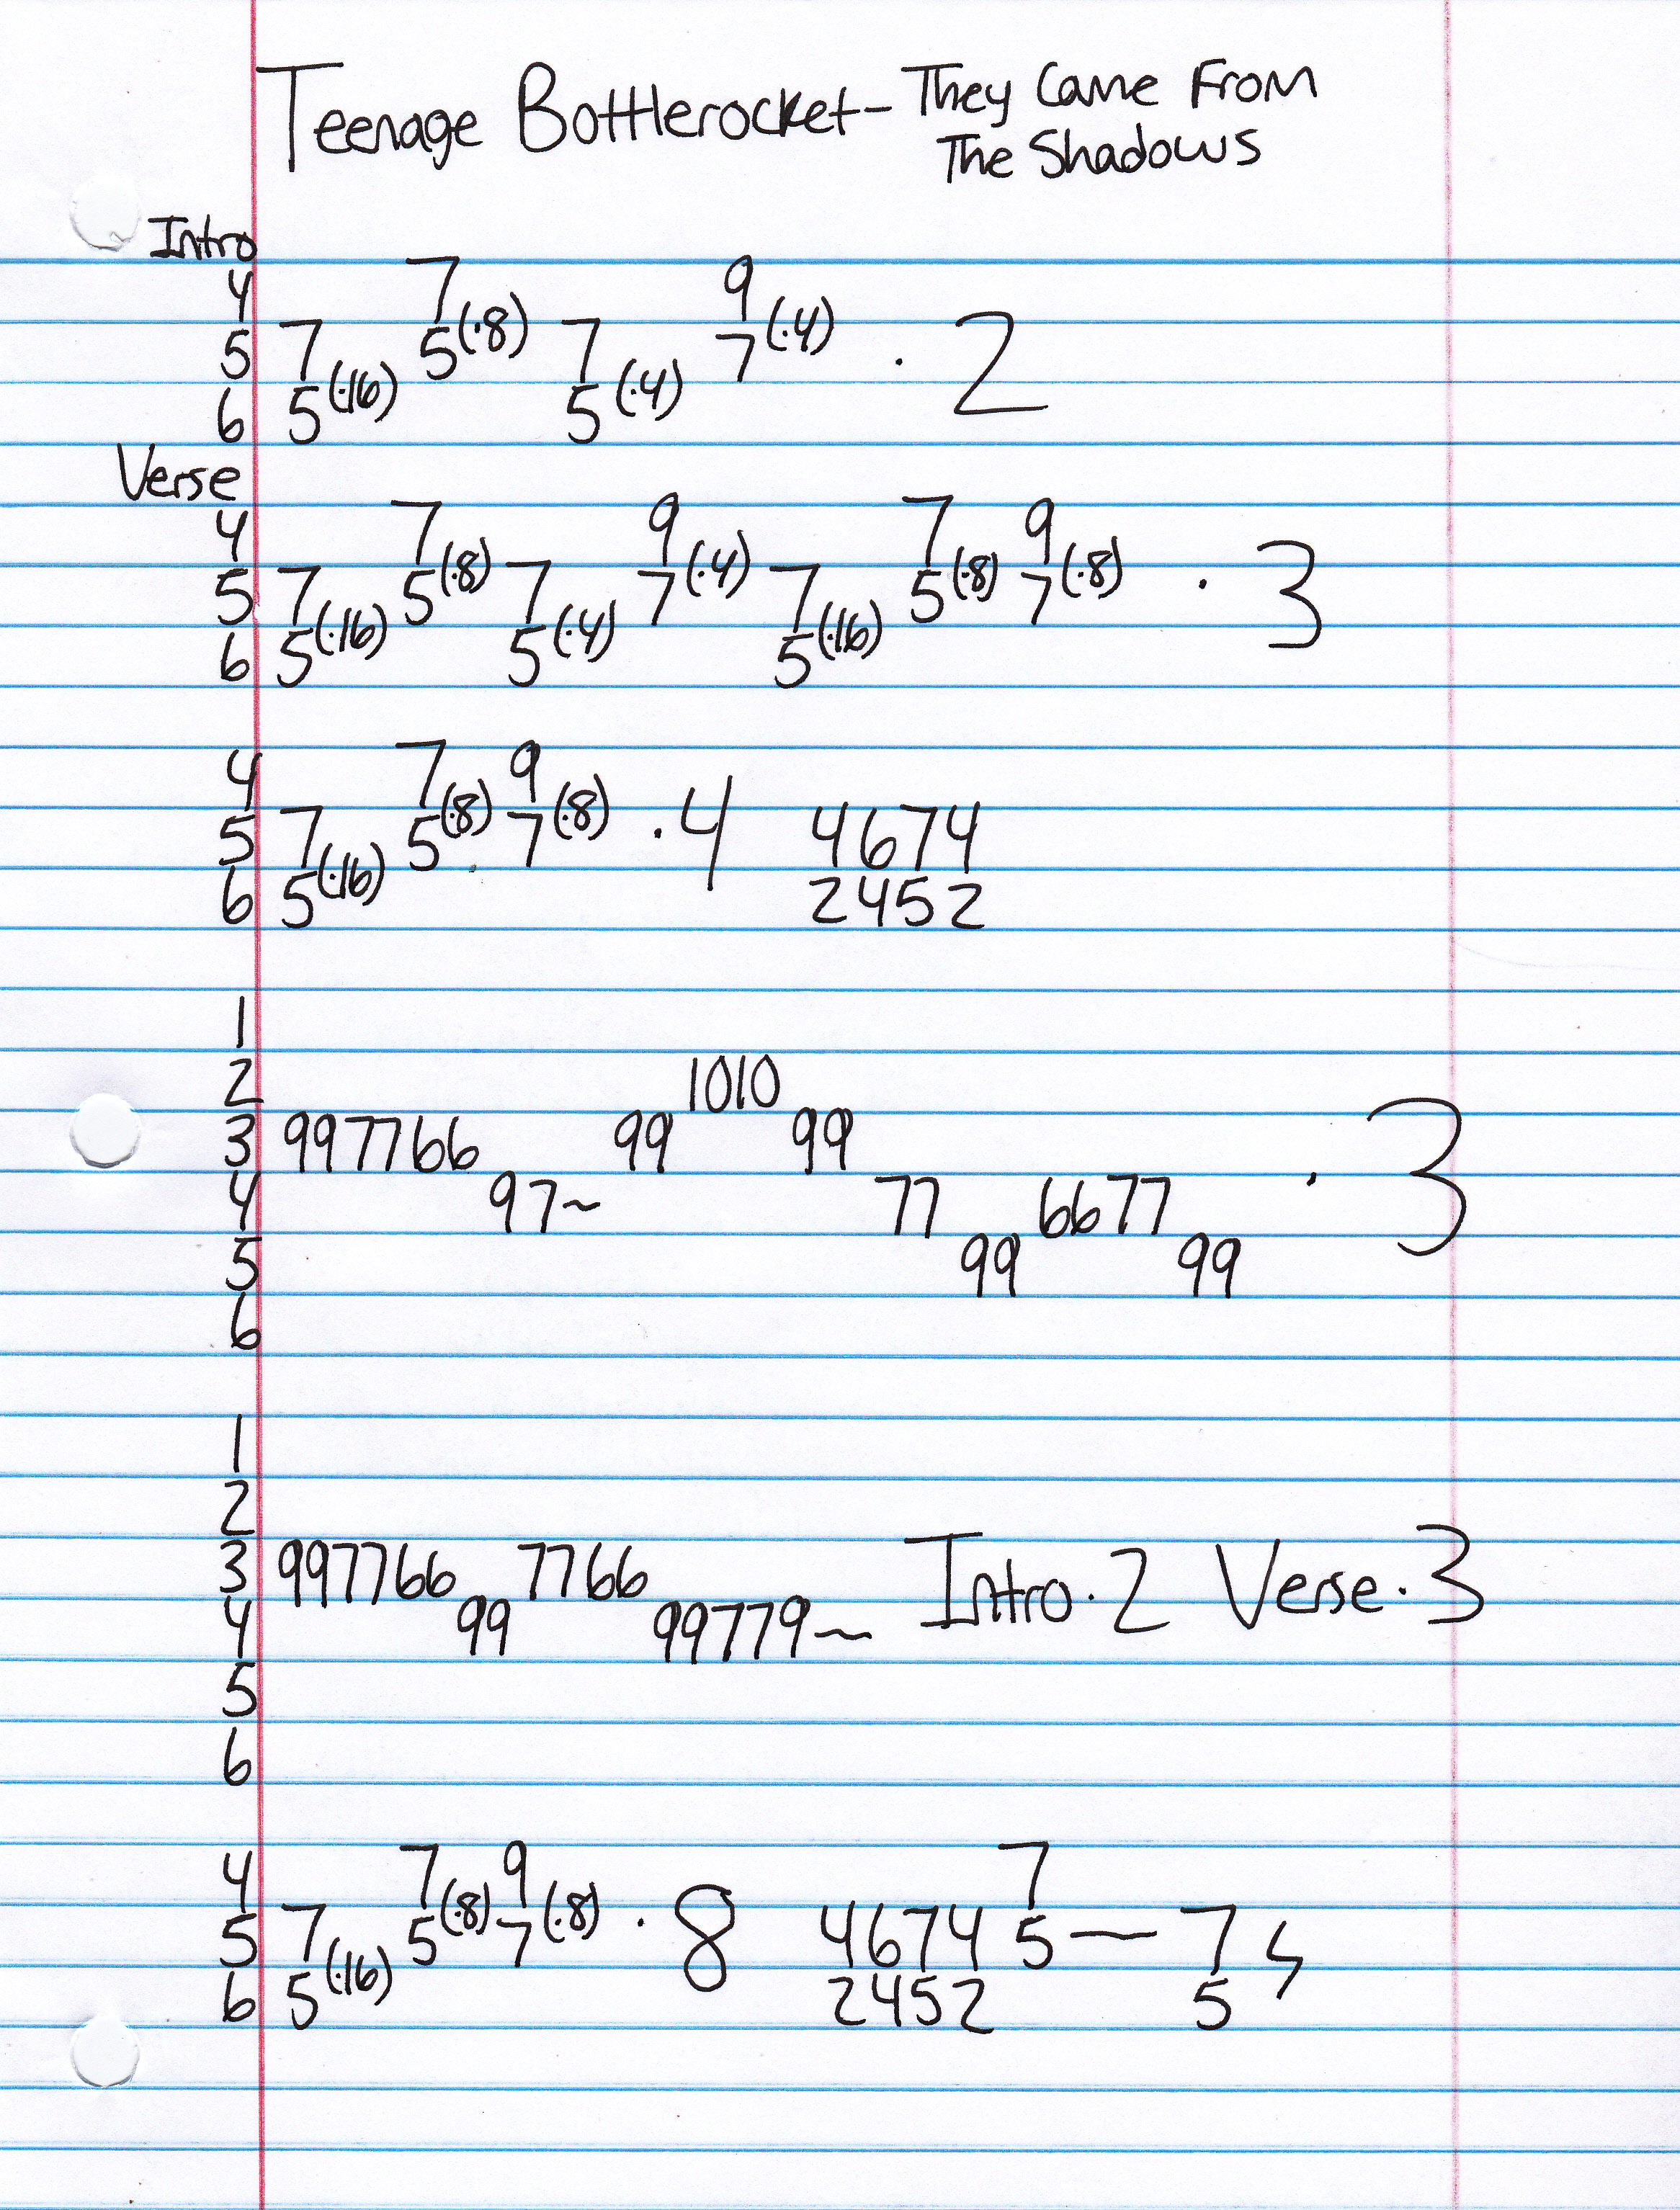 Teenage Bottlerocket - They Came From
The Shadows
Intro
4 7 9
5 7 5(·8) 7 7(·4) · 2
6 5(·16) 5(·4)
Verse
4 7 9 7 9
5 7 5(·8) 7 7(·4) 7 5(·8) 7(·8) · 3
6 5(·16) 5(·4) 5(·16)
4 7 9
5 7 5(·8) 7(·8) · 4 4674
6 5(·16) 2452
1
2 1010
3 997766 99 99 · 3
4 97~ 77 6677
5 99 99
6
1
2
3 997766 7766 Intro · 2 Verse · 3
4 99 99779~
5
6
4 7 9 7
5 7 5(·8) 7(·8) · 8 4674 5— 7
6 5(·16) 2452 5